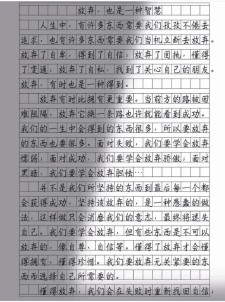 放弃，也是一种智慧
人生中，有许多东西需要我们孜孜不倦去
追求，也有许多东西需要我们当机立断去放弃。
放弃了自卑，得到了自信；放弃了固执，懂得
了变通；放弃了自私，找到了关心自己的朋友。
放弃，有时也是一种得到。
放弃有时比拥有更重要。当前方的路被困
难阻隔，放弃它换一条路也许就能看到成功。
我们的一生中会得到的东西很多，所以要放弃
的东西也要很多。面对失败，我们要学会放弃
懦弱；面对成功，我们要学会放弃骄傲；面对
黑暗，我们要学会放弃胆怯……
并不是我们所坚持的东西到最后每一个都
会获得成功，坚持该放弃的，是一种愚蠢的做
法，这样做只会消磨我们的意志，最终将迷失
自己。我们要学会放弃，但有些东西是不可以
放弃的，像自尊，自信等。懂得了放弃才会懂
得拥有，懂得珍惜。我们要放弃无关紧要的东
西而选择自己所需要的。
懂得放弃，我们会在失败时重新找回自信